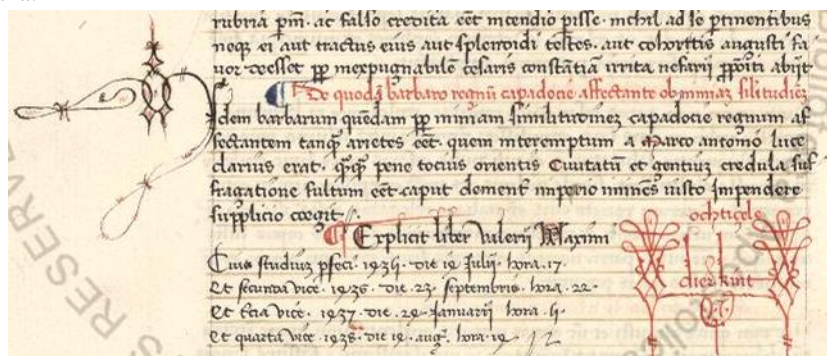 rubria pm. ac falso credita eēt incendio pisse. nichil ad se ptinentibus
neqz ei aut tractus eius aut splendidi testes. aut cohortis augusti fa
uor deesset pp inexpugnabilē cesaris constātiā irrita nefarii ppoiti abijt
De quodā barbaro regnū capadocie affectante ob nimiaz silitudiez
dem barbarum quēdam pp nimiam similitudinez capadocie regnum af
fectantem tanqz arietes eēt. quem interemptum a Marco antonio luce
clarius erat. qzqz pene tocius orientis Ciuitatū et gentiuz credula suf
fragatione fultum eēt. caput dement imperio imminēs iusto impendere
supplicio coegit
Explicit liber Valerii Maximi
Cuius studiuz pfeci. die 12 Julii. hora. 17.
Et secunda vice. die. 23. septembris. hora. 22.
Et tercia vice. 1437. die. 24. Januarii hora.
Et quarta vice. 1438. die 12. aug. hora 14
S RESERVE